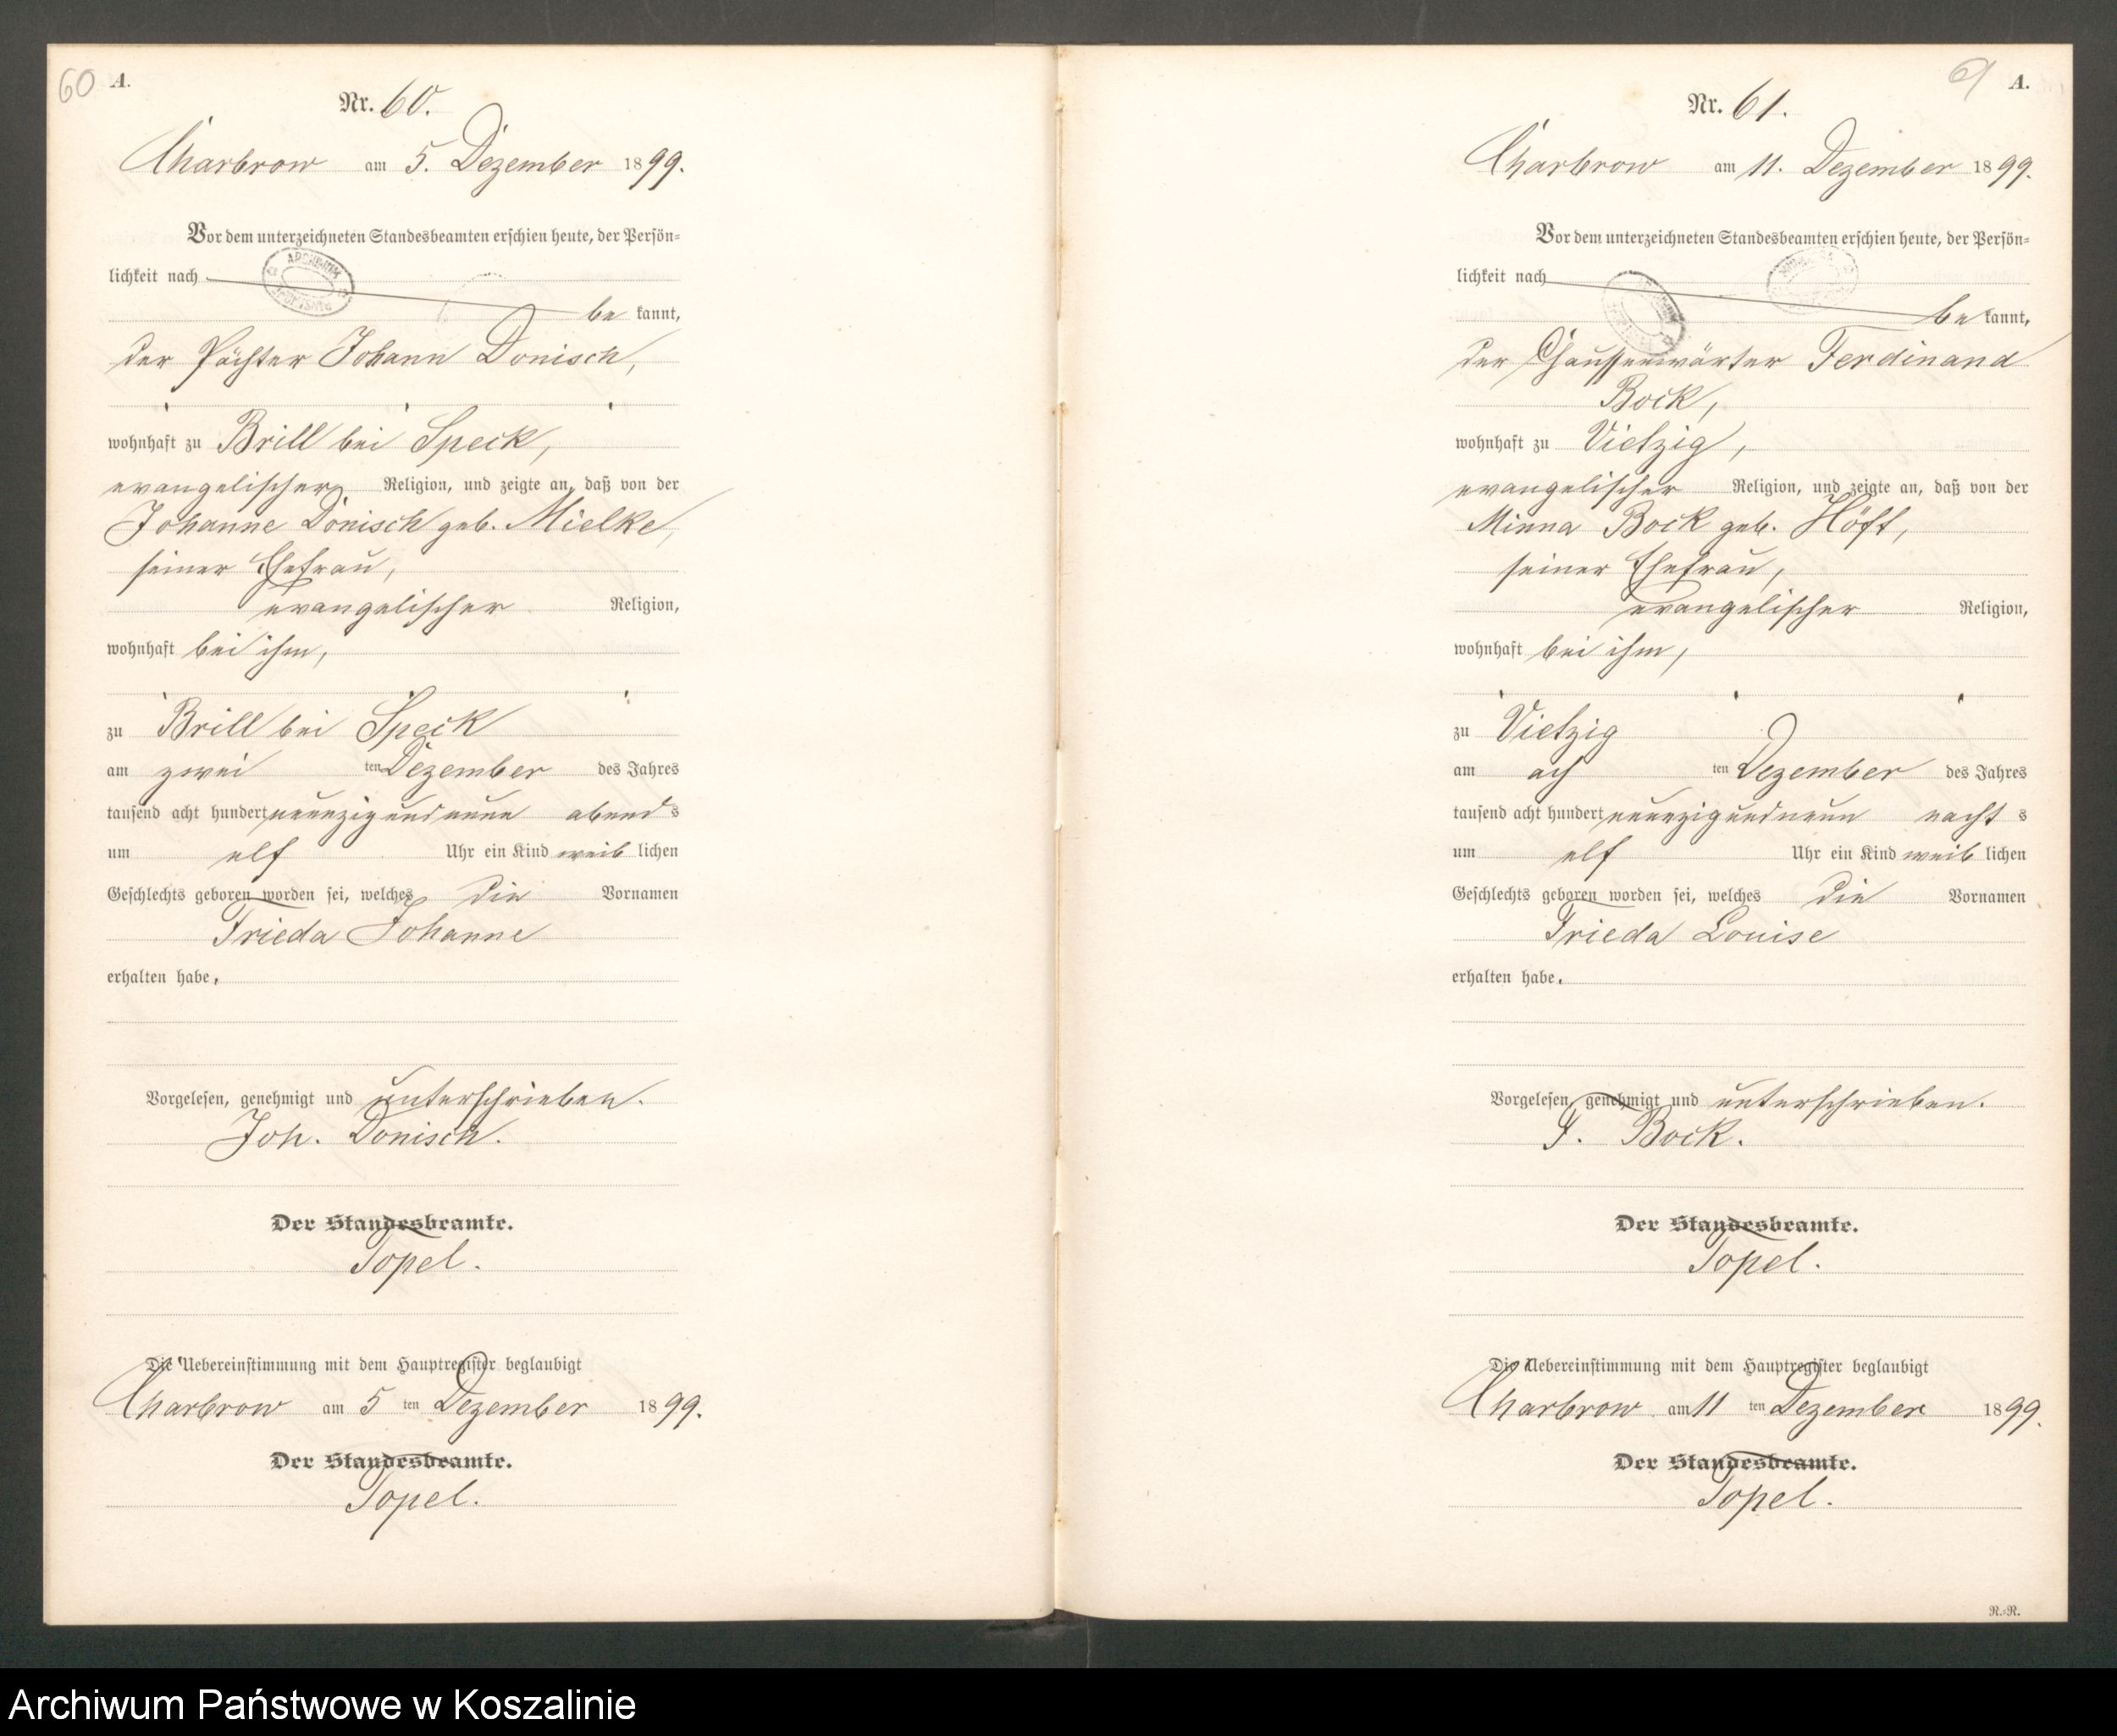 60 A.
Nr. 60.
Charbrow am 5. Dezember 1899.
Vor dem unterzeichneten Standesbeamten erschien heute, der Persön=
lichkeit nach
be kannt,
der Pächter Johann Donisch,
wohnhaft zu Brill bei Speck,
evangelischer Religion, und zeigte an, daß von der
Johanne Donisch geb. Mielke,
seiner Ehefrau,
evangelischer Religion,
wohnhaft bei ihm,
zu Brill bei Speck
am zwei ten Dezember des Jahres
tausend acht hundert neunzig und neun abend s
um elf Uhr ein Kind weib lichen
Geschlechts geboren worden sei, welches die Vornamen
Frieda Johanne
erhalten habe.
Vorgelesen, genehmigt und unterschrieben.
Joh. Donisch.
Der Standesbeamte.
Topel.
Die Uebereinstimmung mit dem Hauptregister beglaubigt
Charbrow am 5 ten Dezember 1899.
Der Standesbeamte.
Topel.
61 A.
Nr. 61.
Charbrow am 11. Dezember 1899.
Vor dem unterzeichneten Standesbeamten erschien heute, der Persön=
lichkeit nach
be kannt,
der Chausseewärter Ferdinand
Bock,
wohnhaft zu Vietzig,
evangelischer Religion, und zeigte an, daß von der
Minna Bock geb. Höft,
seiner Ehefrau,
evangelischer Religion,
wohnhaft bei ihm,
zu Vietzig
am ach ten Dezember des Jahres
tausend acht hundert neunzig und neun nacht s
um elf Uhr ein Kind weib lichen
Geschlechts geboren worden sei, welches die Vornamen
Frieda Louise
erhalten habe.
Vorgelesen, genehmigt und unterschrieben.
F. Bock.
Der Standesbeamte.
Topel.
Die Uebereinstimmung mit dem Hauptregister beglaubigt
Charbrow am 11 ten Dezember 1899.
Der Standesbeamte.
Topel.
R.=R.
Archiwum Państwowe w Koszalinie